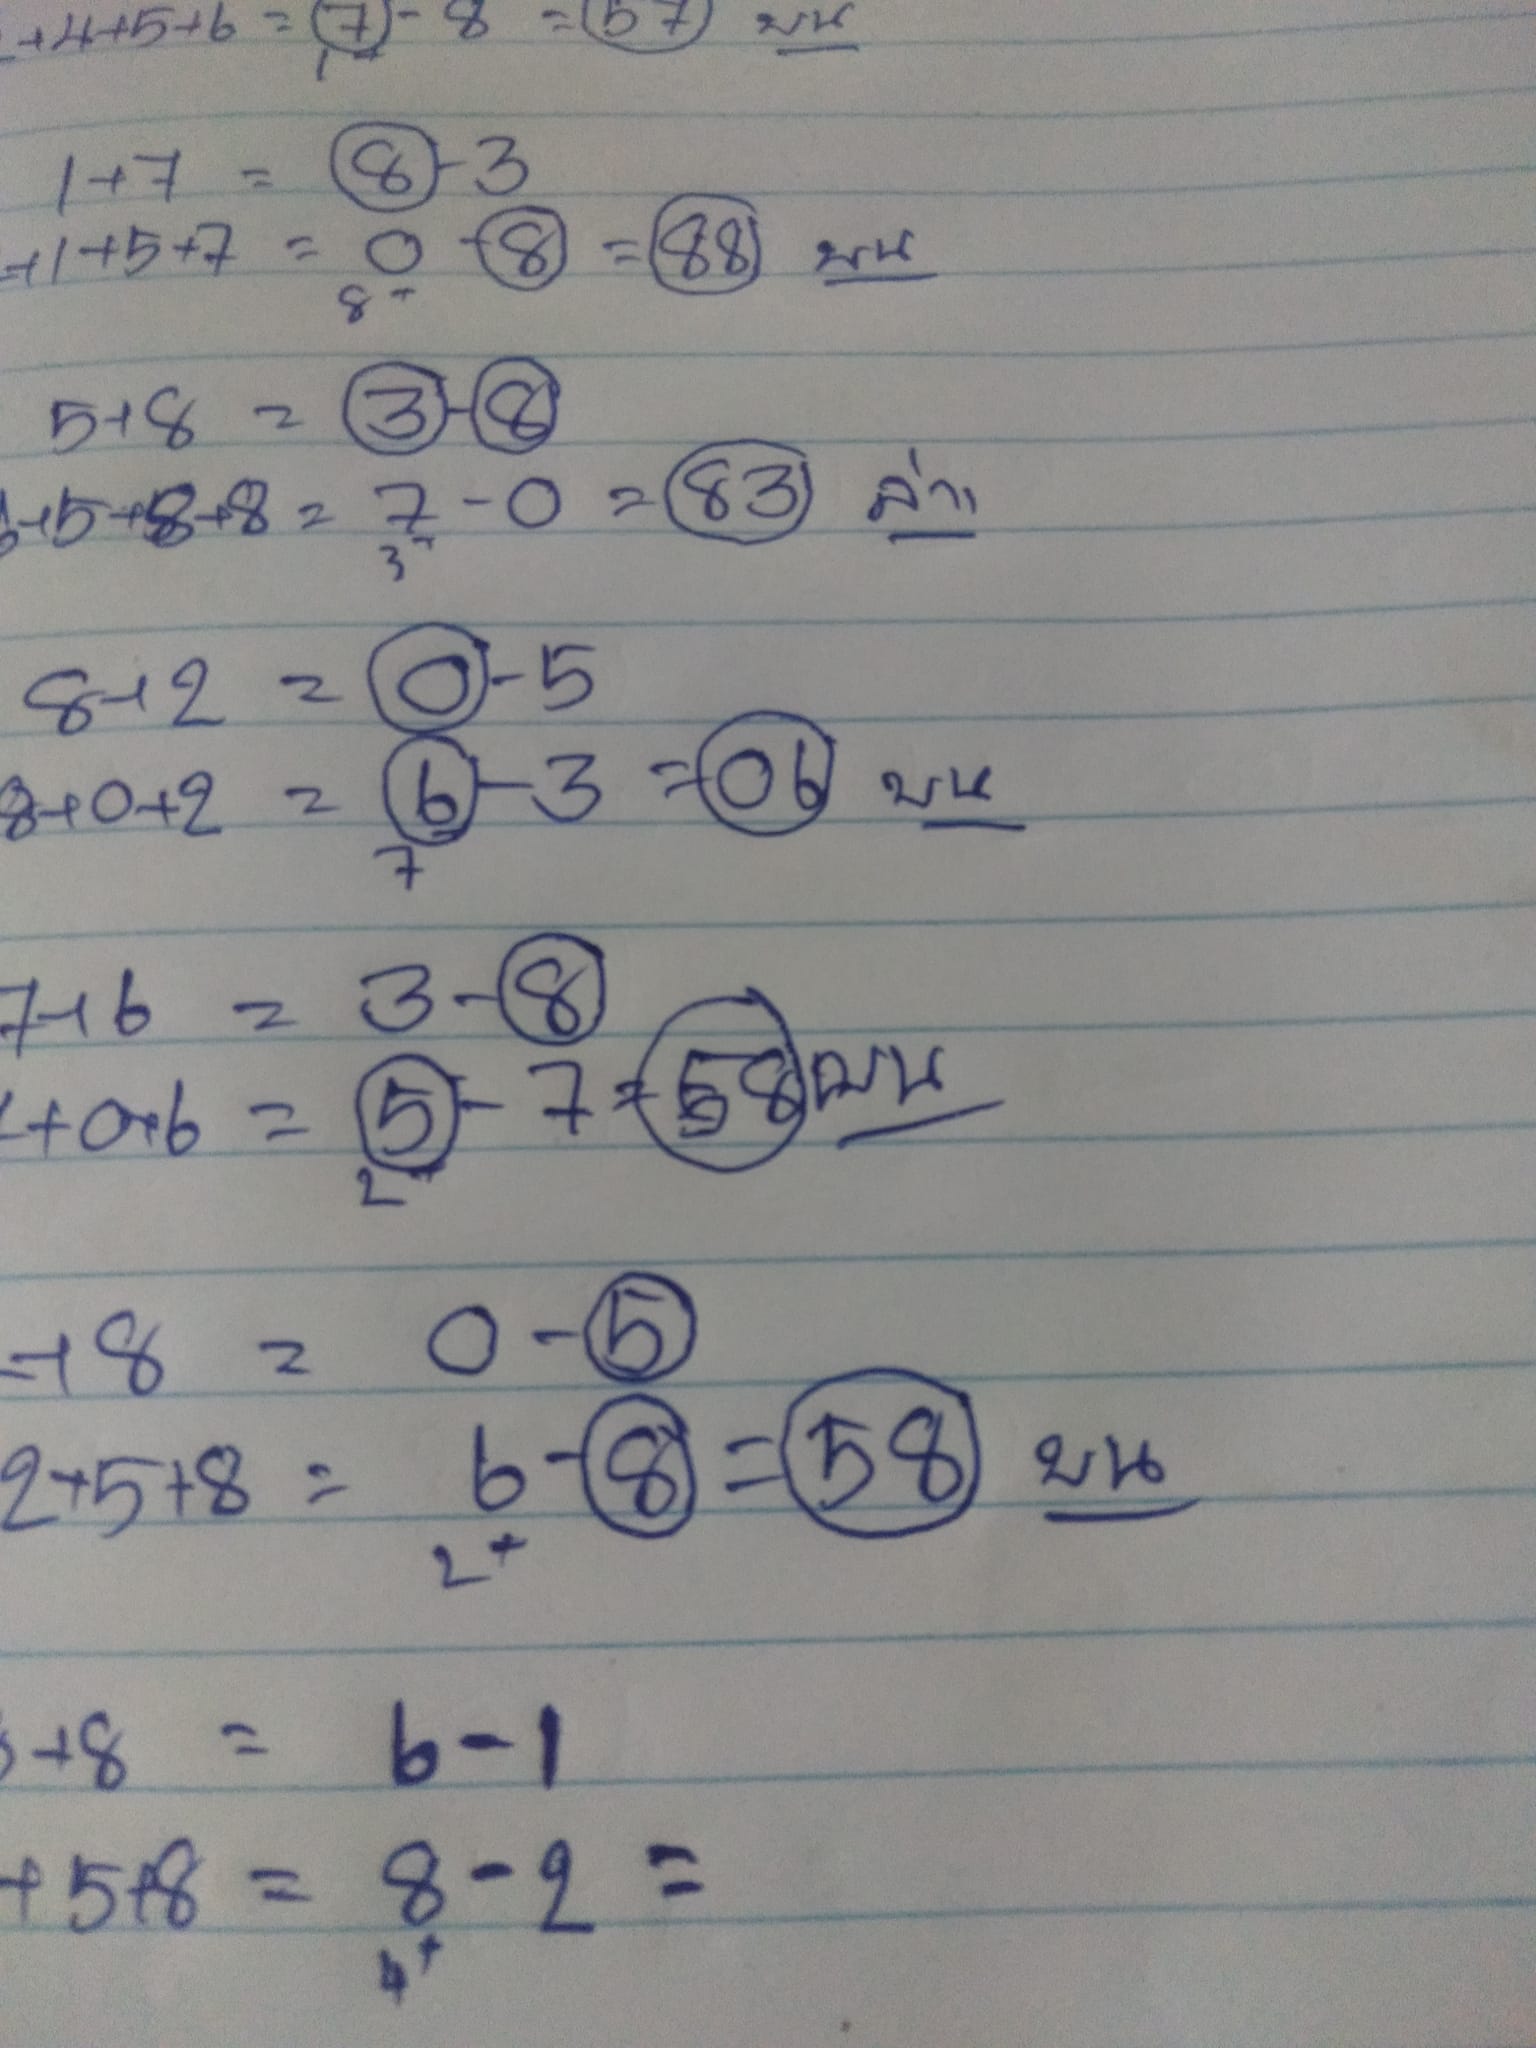 +4+5+6 = 7 - 8 = 57 บน
1+
1+7 = 8 - 3
+1+5+7 = 0 - 8 = 88 บน
8+
5+8 = 3 - 8
+5+8+8 = 7 - 0 = 83 ล่าง
3+
8+2 = 0 - 5
8+0+2 = 6 - 3 = 06 บน
7
7+6 = 3 - 8
+0+6 = 5 - 7 = 58 บน
2+
+8 = 0 - 5
2+5+8 = 6 - 8 = 58 บน
2+
+8 = 6 - 1
+5+8 = 8 - 2 =
4+